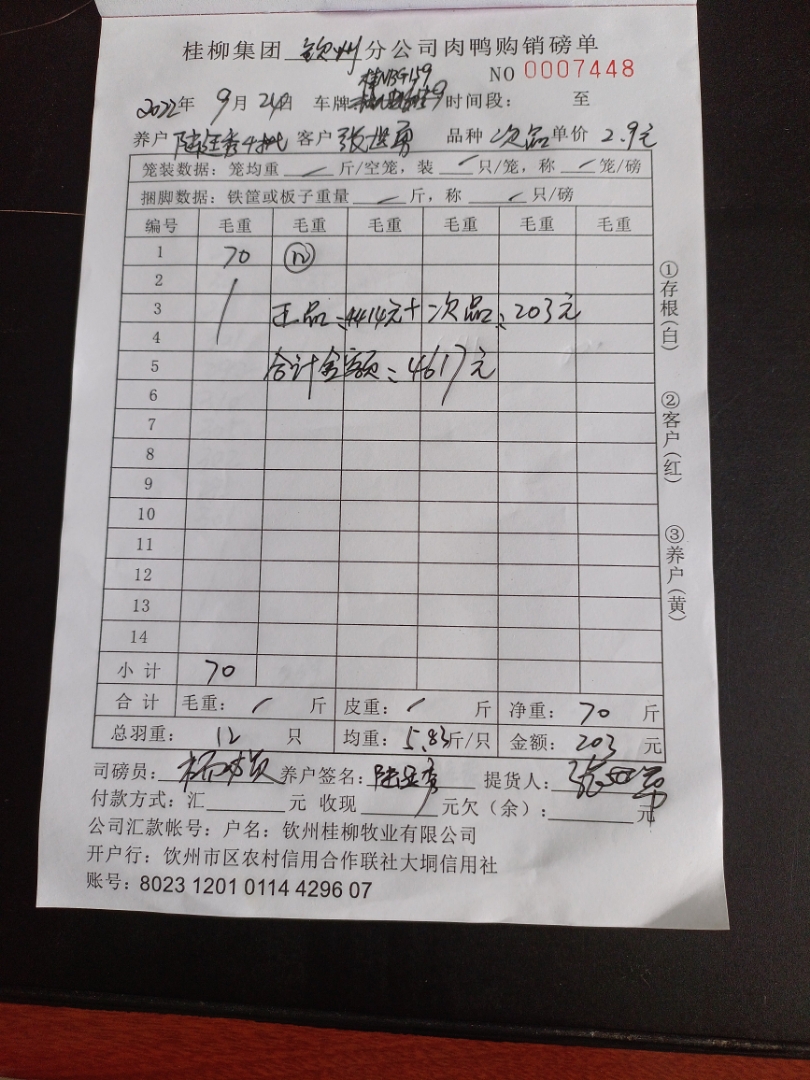 桂柳集团 钦州 分公司肉鸭购销磅单
NO 0007448
2022年 9月 24日 车牌 时间段： 至
养户 客户 品种 次品 单价 2.9元
笼装数据：笼均重 / 斤/空笼，装 / 只/笼，称 / 笼/磅
捆脚数据：铁筐或板子重量 / 斤，称 / 只/磅
编号 毛重 毛重 毛重 毛重 毛重 毛重
1 70 ⑫
2
3 正品：4414元+次品：203元
4
5 合计金额：4617元
6
7
8
9
10
11
12
13
14
小计 70
合计 毛重： / 斤 皮重： / 斤 净重： 70 斤
总羽重： 12 只 均重： 5.83斤/只 金额： 203 元
司磅员： 养户签名： 提货人：
付款方式：汇 元 收现 元欠（余）： 元
公司汇款帐号：户名：钦州桂柳牧业有限公司
开户行：钦州市区农村信用合作联社大垌信用社
账号：8023 1201 0114 4296 07
①存根（白）
②客户（红）
③养户（黄）